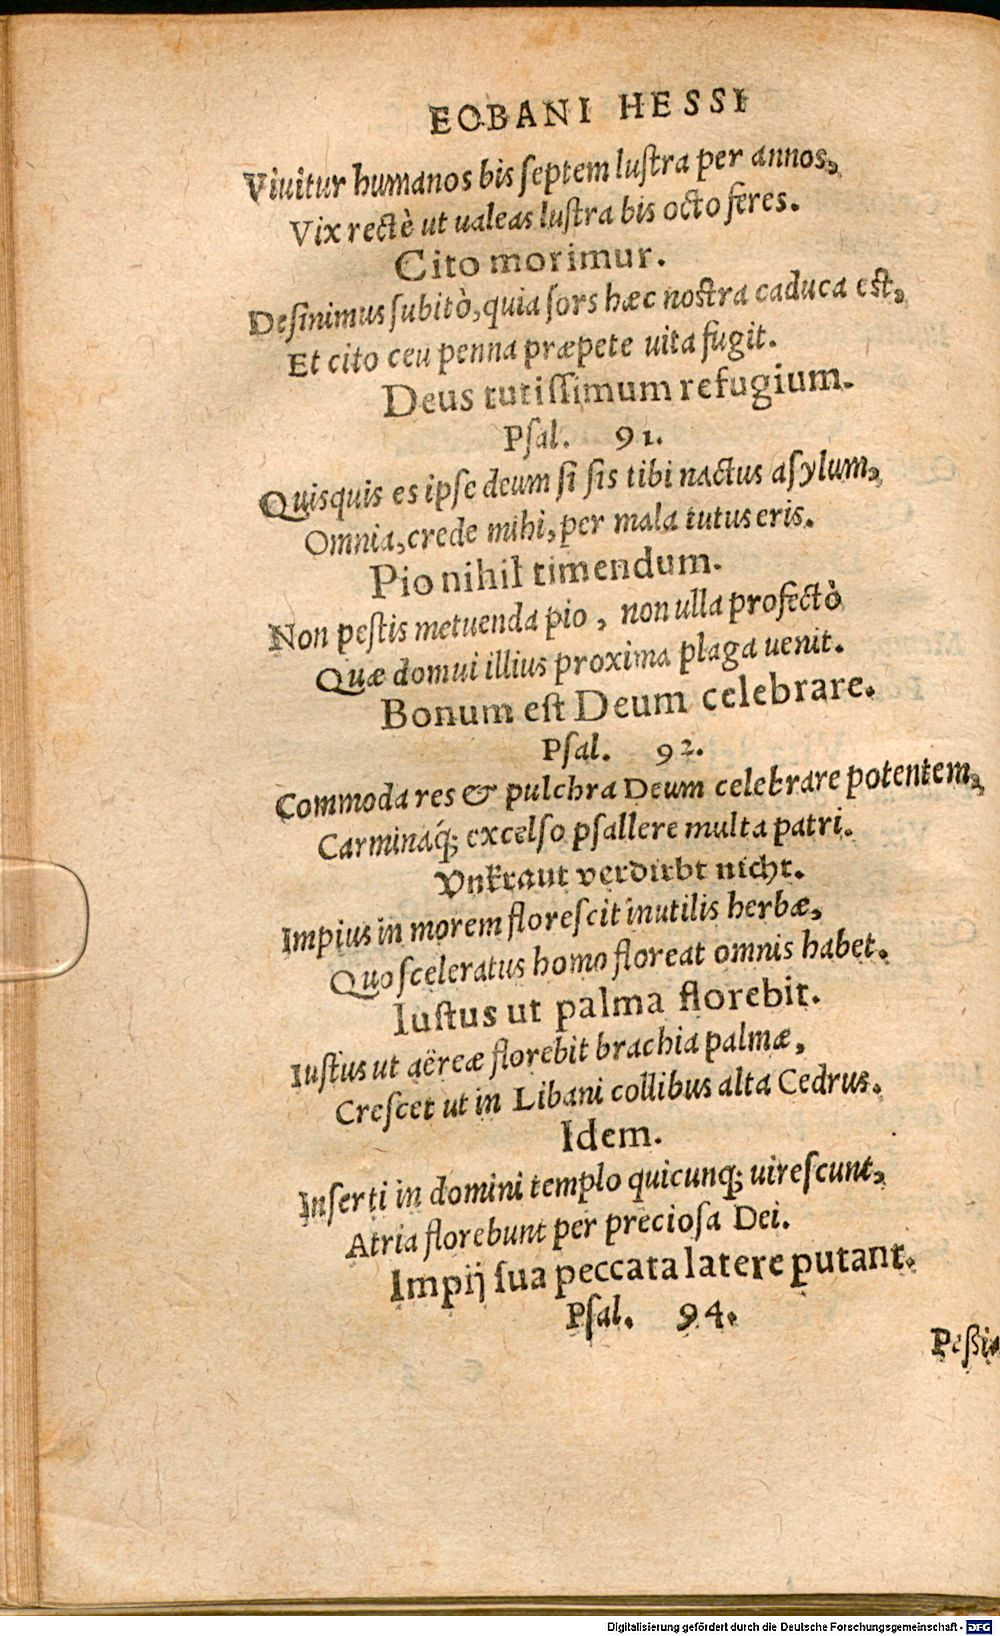 EOBANI HESSI
Viuitur humanos bis ſeptem luſtra per annos,
Vix rectè ut ualeas luſtra bis octo feres.
Cito morimur.
Deſinimus ſubitò, quia ſors hæc noſtra caduca eſt,
Et cito ceu penna præpete uita fugit.
Deus tutiſſimum refugium.
Pſal. 91.
Quisquis es ipſe deum ſi ſis tibi nactus aſylum,
Omnia, crede mihi, per mala tutus eris.
Pio nihil timendum.
Non peſtis metuenda pio, non ulla profectò
Quæ domui illius proxima plaga uenit.
Bonum eſt Deum celebrare.
Pſal. 92.
Commoda res & pulchra Deum celebrare potentem,
Carminaq́; excelſo pſallere multa patri.
Vnkraut verdirbt nicht.
Impius in morem floreſcit inutilis herbæ,
Quo ſceleratus homo floreat omnis habet.
Iuſtus ut palma florebit.
Iuſtus ut aëreæ florebit brachia palmæ,
Creſcet ut in Libani collibus alta Cedrus.
Idem.
Inſerti in domini templo quicunq; uireſcunt,
Atria florebunt per precioſa Dei.
Impij ſua peccata latere putant.
Pſal. 94.
Peßi-
Digitalisierung gefördert durch die Deutsche Forschungsgemeinschaft - DFG